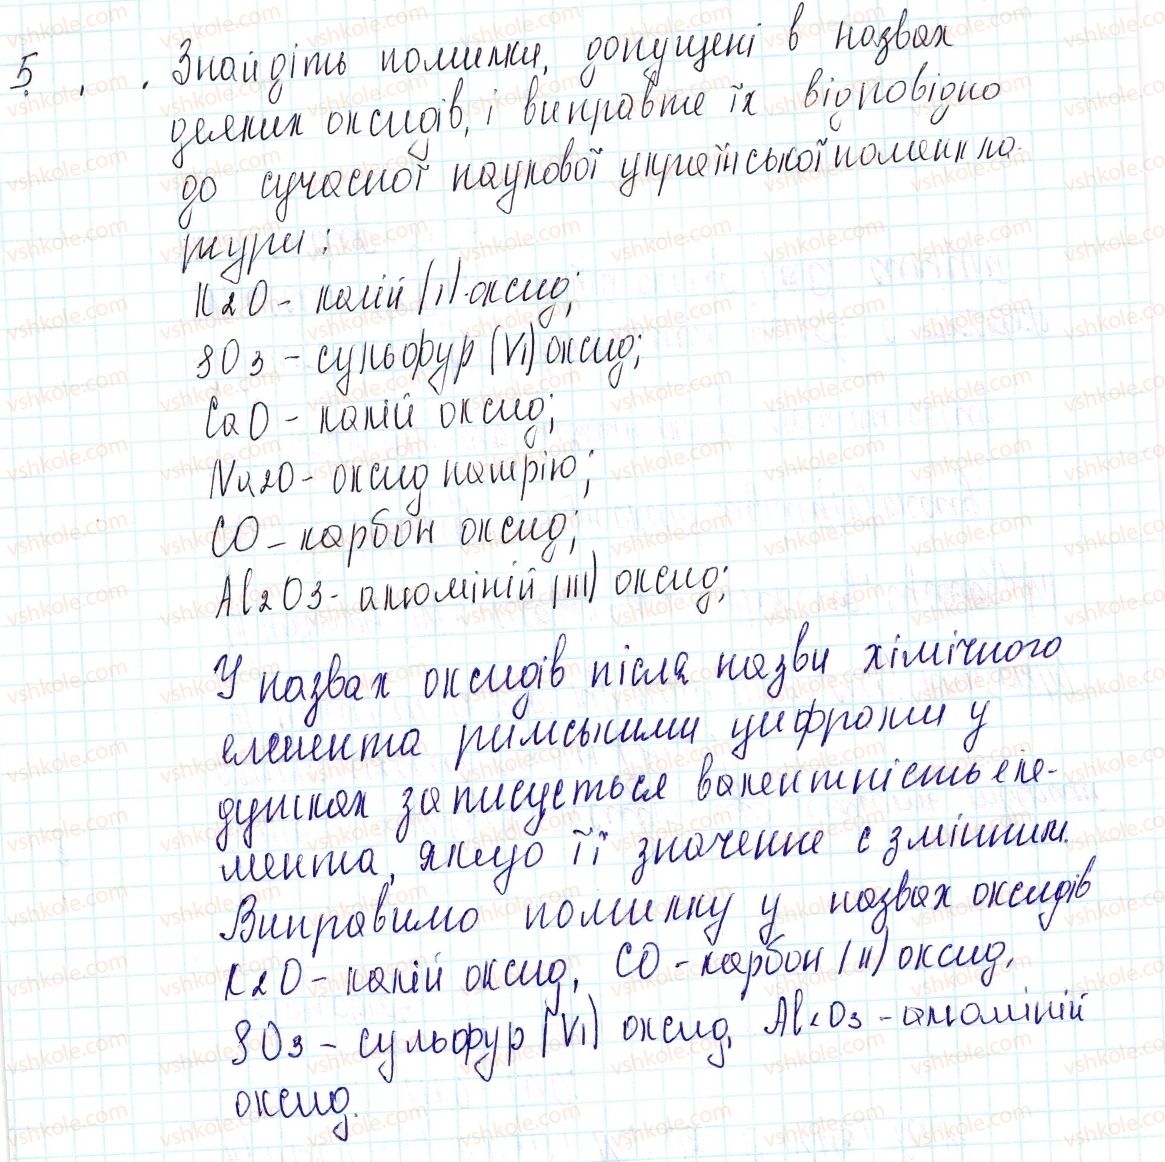 5. Знайдіть помилки, допущені в назвах
деяких оксидів, і виправте їх відповідно
до сучасної наукової української номенкла-
тури:
K2O - калій (I) оксид;
SO3 - сульфур (VI) оксид;
CaO - калій оксид;
Na2O - оксид натрію;
CO - карбон оксид;
Al2O3 - алюміній (III) оксид;
У назвах оксидів після назви хімічного
елемента римськими цифрами у
дужках записується валентність еле-
мента, якщо її значення є змінним.
Виправимо помилку у назвах оксидів
K2O - калій оксид, CO - карбон (II) оксид,
SO3 - сульфур (VI) оксид, Al2O3 - алюміній
оксид.